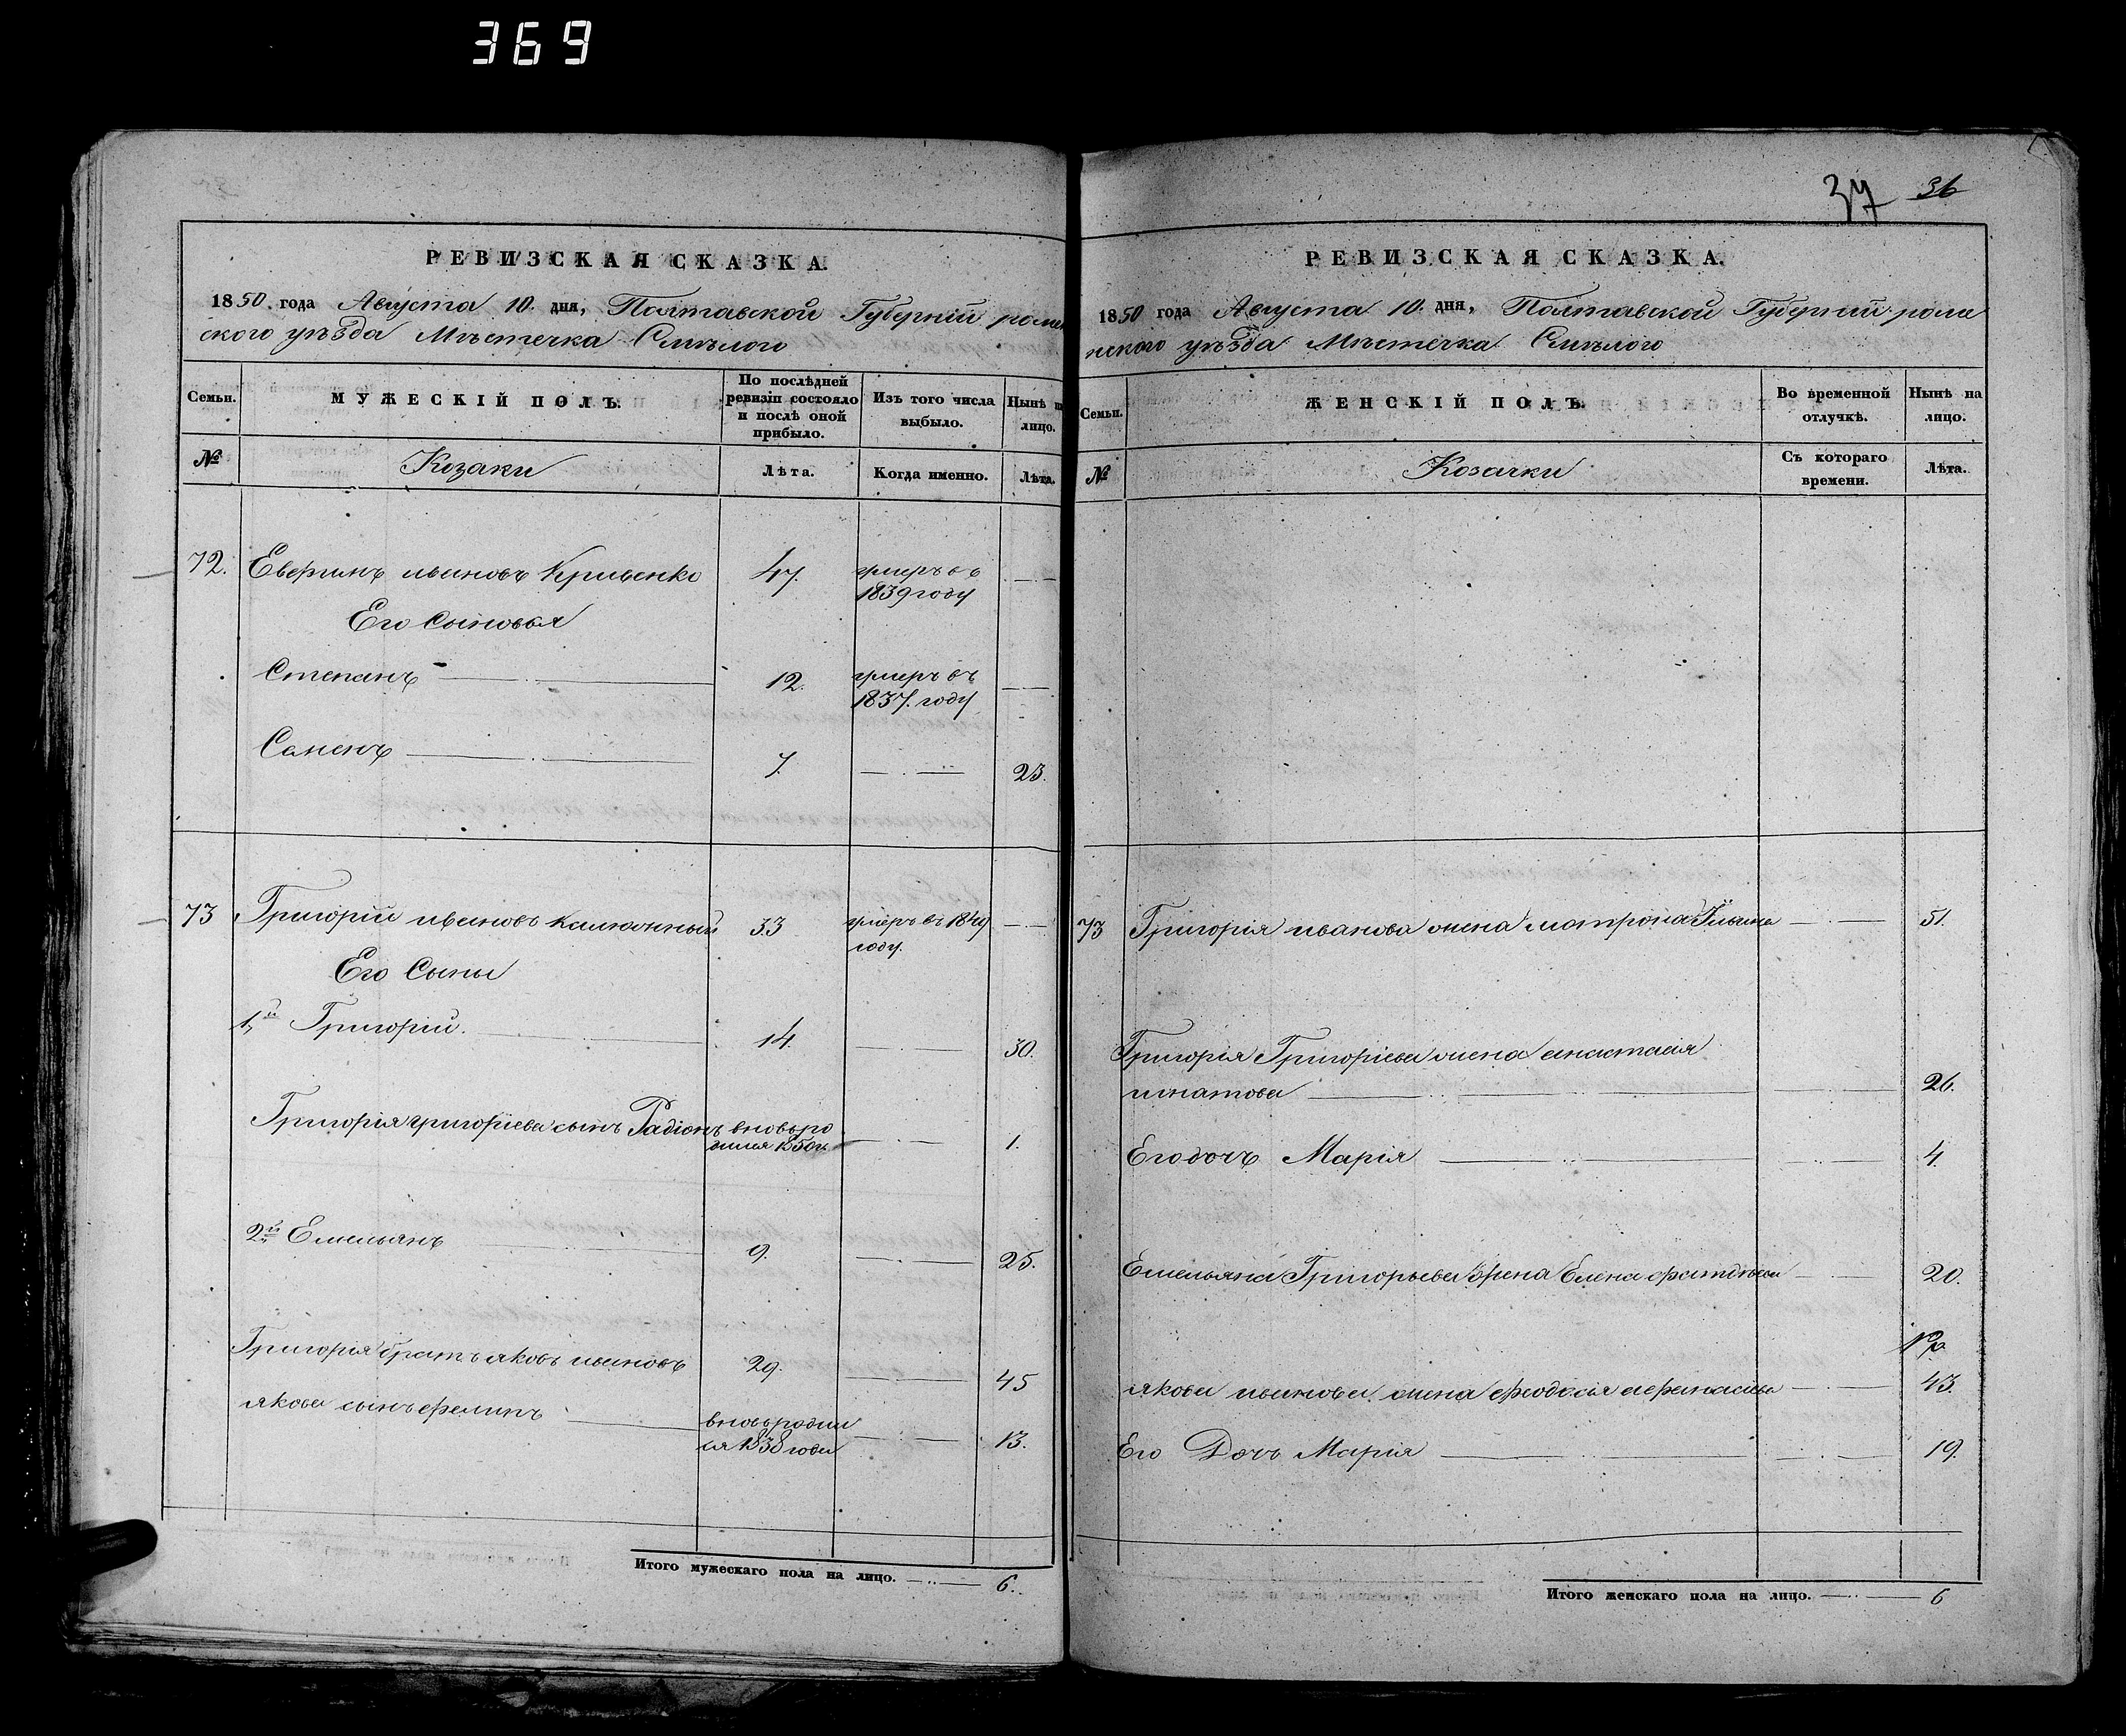 369
РЕВИЗСКАЯ СКАЗКА.
1850. года Августа 10. дня, Полтавской Губерніи роме
ского уѣзда Мѣстечка Смѣлого
Семьи.
МУЖЕСКІЙ ПОЛЪ.
По послѣдней ревизіи состояло и послѣ оной прибыло.
Изъ того числа выбыло.
Нынѣ н лицо.
№
Козаки
Лѣта.
Когда именно.
Лѣта.
72. ивановъ Кривенко 47. умеръ въ
1839 году
Его Сыновья
Степанъ 12. умеръ въ
1837. году
7. 23.
73 Григорій ивановъ 33 умеръ въ 1849
году.
Его Сыны
1й Григорій. 14. 30.
Григорія григорiева сынъ Радіонъ вновьро
дился 1850г. 1.
2й Емельянъ 9. 25.
Григорія братъ яковъ ивановъ 29. 45
якова сынъ филипъ вновьродил
ся 1838 года 13.
Итого мужескаго пола на лицо. 6.
37 36
РЕВИЗСКАЯ СКАЗКА.
1850 года Августа 10. дня, Полтавской Губерніи роме
нского уѣзда Мѣстечка Смѣлого
Семьи.
ЖЕНСКІЙ ПОЛЪ.
Во временной отлучкѣ.
Нынѣ на лицо.
№
Козачки
Съ котораго времени.
Лѣта.
73 Григорія иванова жена матрона Ильина 51.
Григорія Григоріева жена анастасія
игнатова 26.
Его дочь Марія 4.
Емельяна Григорьева жена Елена 20.
якова иванова жена феодосія афанасіева 43.
Его Дочь Марія 19.
Итого женскаго пола на лицо. 6